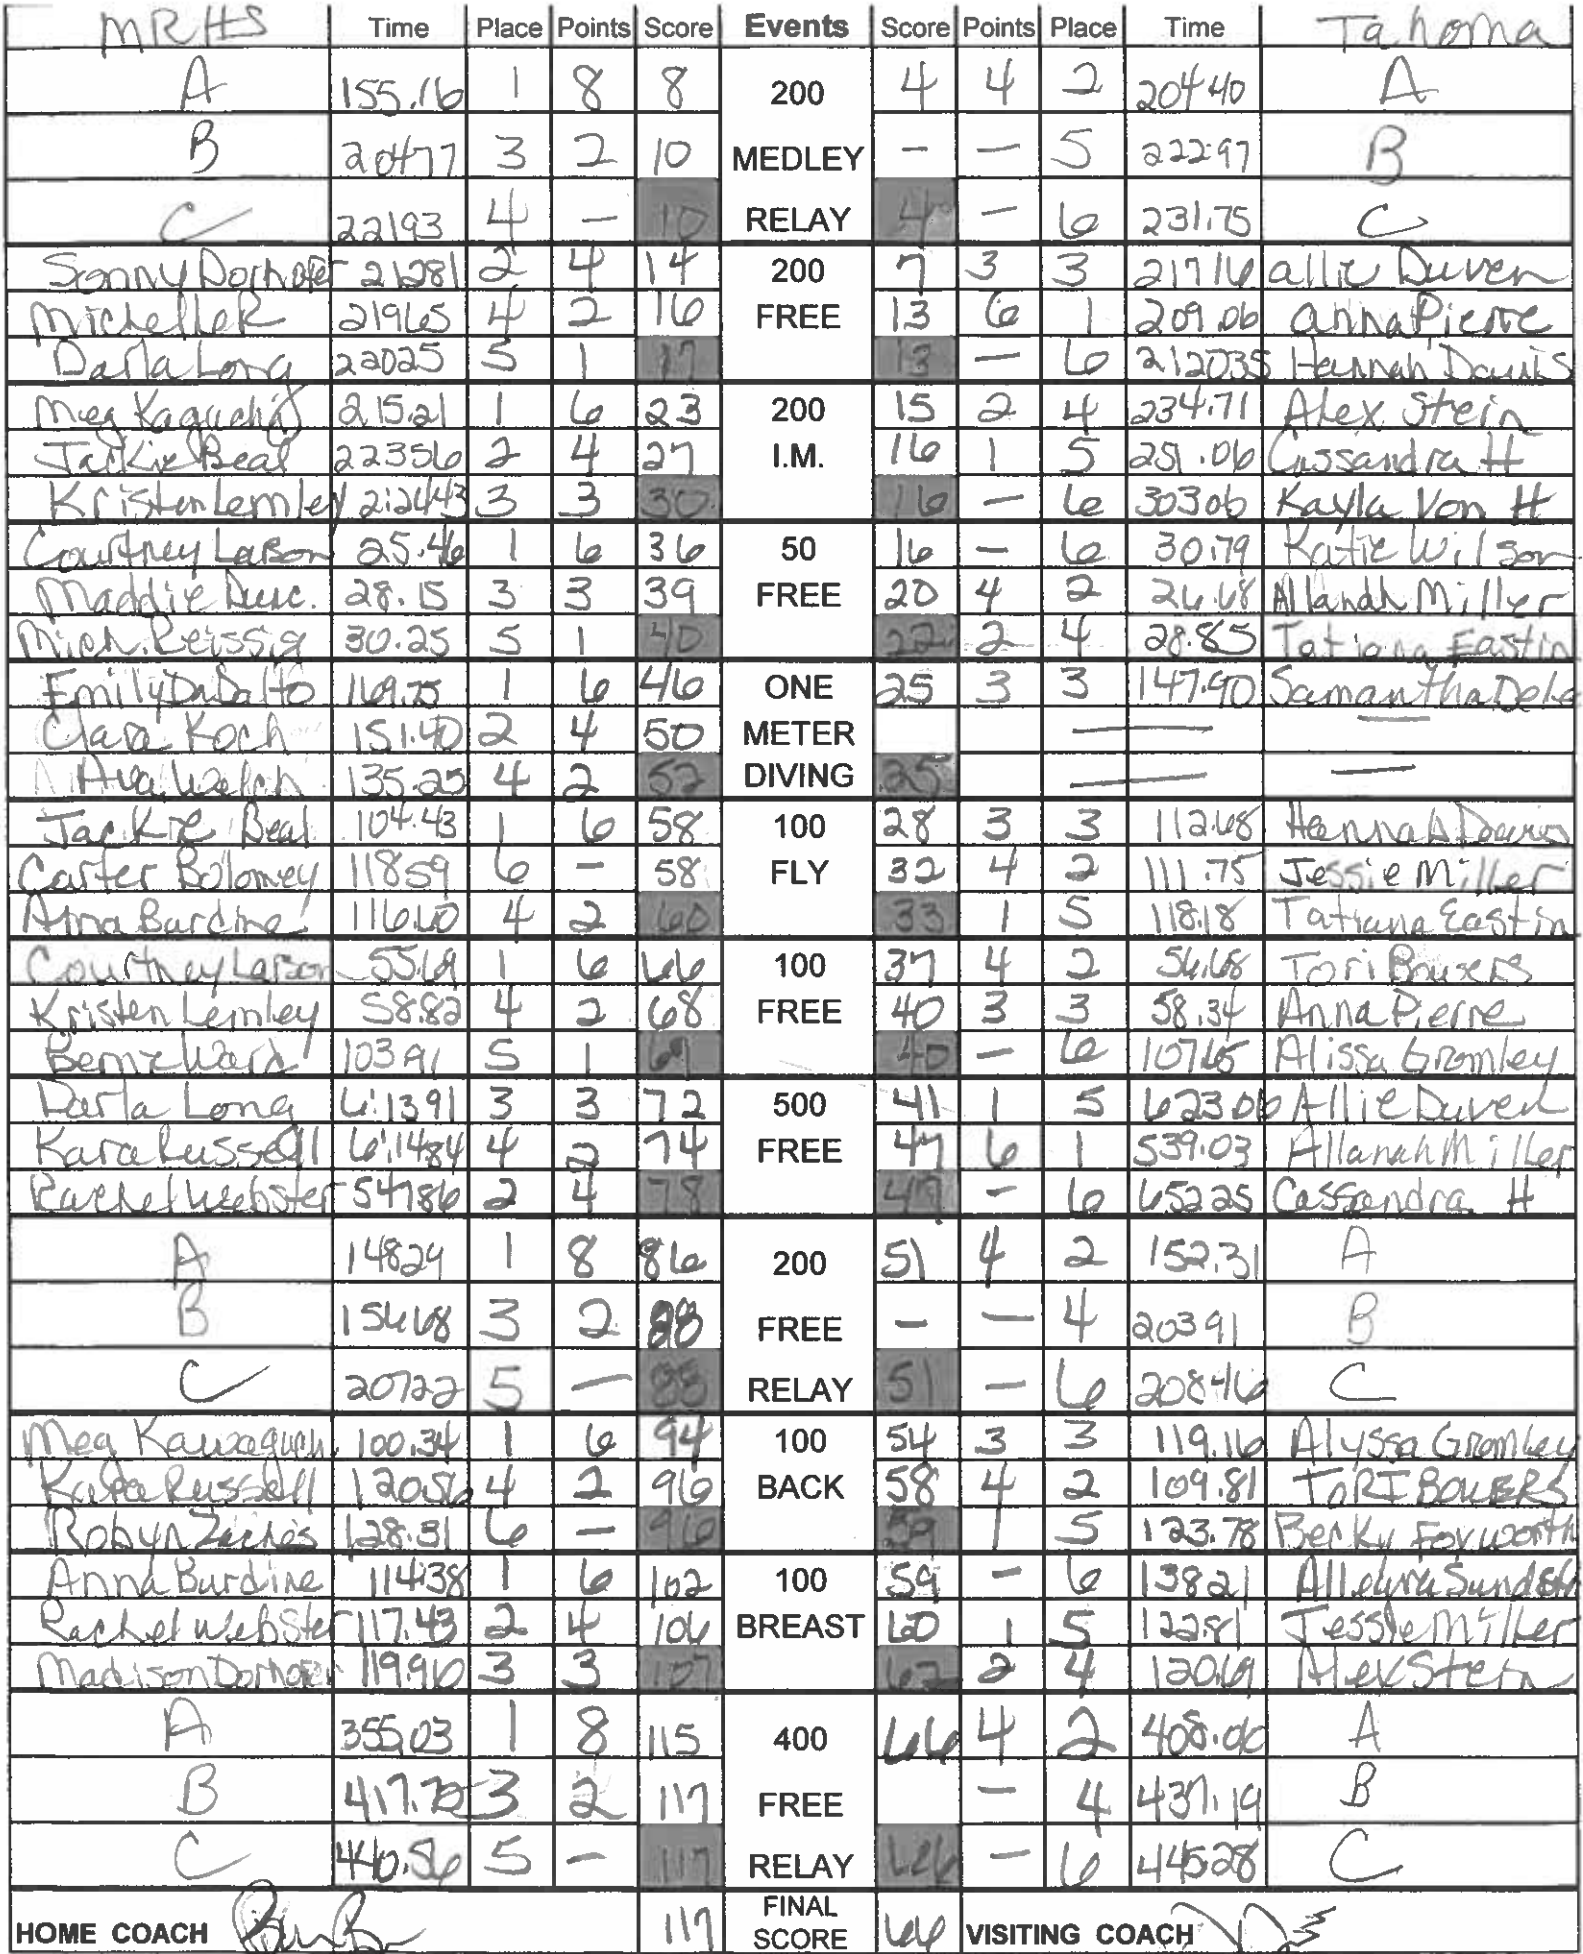 MRHS Time Place Points Score Events Score Points Place Time Tahoma
A 155.16 1 8 8 200 4 4 2 204.40 A
B 20477 3 2 10 MEDLEY - - 5 222.97 B
C 22193 4 - 10 RELAY 4 - 6 231.75 C
Sonny Dorhofer 21281 2 4 14 200 7 3 3 21716 allie Duven
Michelle R 21965 4 2 16 FREE 13 6 1 209.06 anna Pierre
Darla Long 22025 5 1 17 13 - 6 Hannah Davis
Meg 215.21 1 6 23 200 15 2 4 234.71 Alex Stein
Jackie Beal 22356 2 4 27 I.M. 16 1 5 251.06 Cassandra H
Kristen Lemley 2:2443 3 3 30 16 - 6 30306 Kayla Von H
Courtney Larson 25.46 1 6 36 50 16 - 6 30.79 Katie Wilson
Maddie Duc. 28.15 3 3 39 FREE 20 4 2 26.68 Allanah Miller
Mich. Reissig 30.25 5 1 40 22 2 4 28.85 Tatiana Eastin
Emily DaDalto 169.75 1 6 46 ONE 25 3 3 147.90 Samantha Dela
Clara Koch 151.40 2 4 50 METER — —
Ava Welch 135.25 4 2 52 DIVING 25 — —
Jackie Beal 104.43 1 6 58 100 28 3 3 112.68 Hannah Davis
Carter Bolomey 11859 6 - 58 FLY 32 4 2 111.75 Jessie Miller
Anna Burdine 116.60 4 2 60 33 1 5 118.18 Tatiana Eastin
Courtney Larson 55.69 1 6 66 100 37 4 2 56.68 Tori Bowers
Kristen Lemley 58.82 4 2 68 FREE 40 3 3 58.34 Anna Pierre
Bernie Ward 103.91 5 1 69 40 - 6 10765 Alissa Gromley
Darla Long 6:1391 3 3 72 500 41 1 5 623.06 Allie Duven
Kara Russell 6:1484 4 2 74 FREE 47 6 1 539.03 Allanah Miller
Rachel Webster 54786 2 4 78 47 - 6 65225 Cassandra H
A 14829 1 8 86 200 51 4 2 152.31 A
B 15668 3 2 88 FREE - - 4 20391 B
C 20722 5 - 88 RELAY 51 - 6 20846 C
Meg Kawaguchi 100.34 1 6 94 100 54 3 3 119.16 Alyssa Gromley
Kara Russell 12056 4 2 96 BACK 58 4 2 109.81 TORI BOWERS
Robyn 128.31 6 - 96 59 1 5 123.78 Becky Foxworth
Anna Burdine 114.38 1 6 102 100 59 - 6 13821 Allegra
Rachel Webster 117.43 2 4 106 BREAST 60 1 5 122.81 Jessie Miller
Madison Dorhofer 119.96 3 3 109 62 2 4 120.69 Alex Stein
A 355.03 1 8 115 400 66 4 2 408.06 A
B 417.72 3 2 117 FREE - 4 437.19 B
C 440.56 5 - 117 RELAY 66 - 6 445.28 C
HOME COACH 117 FINAL SCORE 66 VISITING COACH